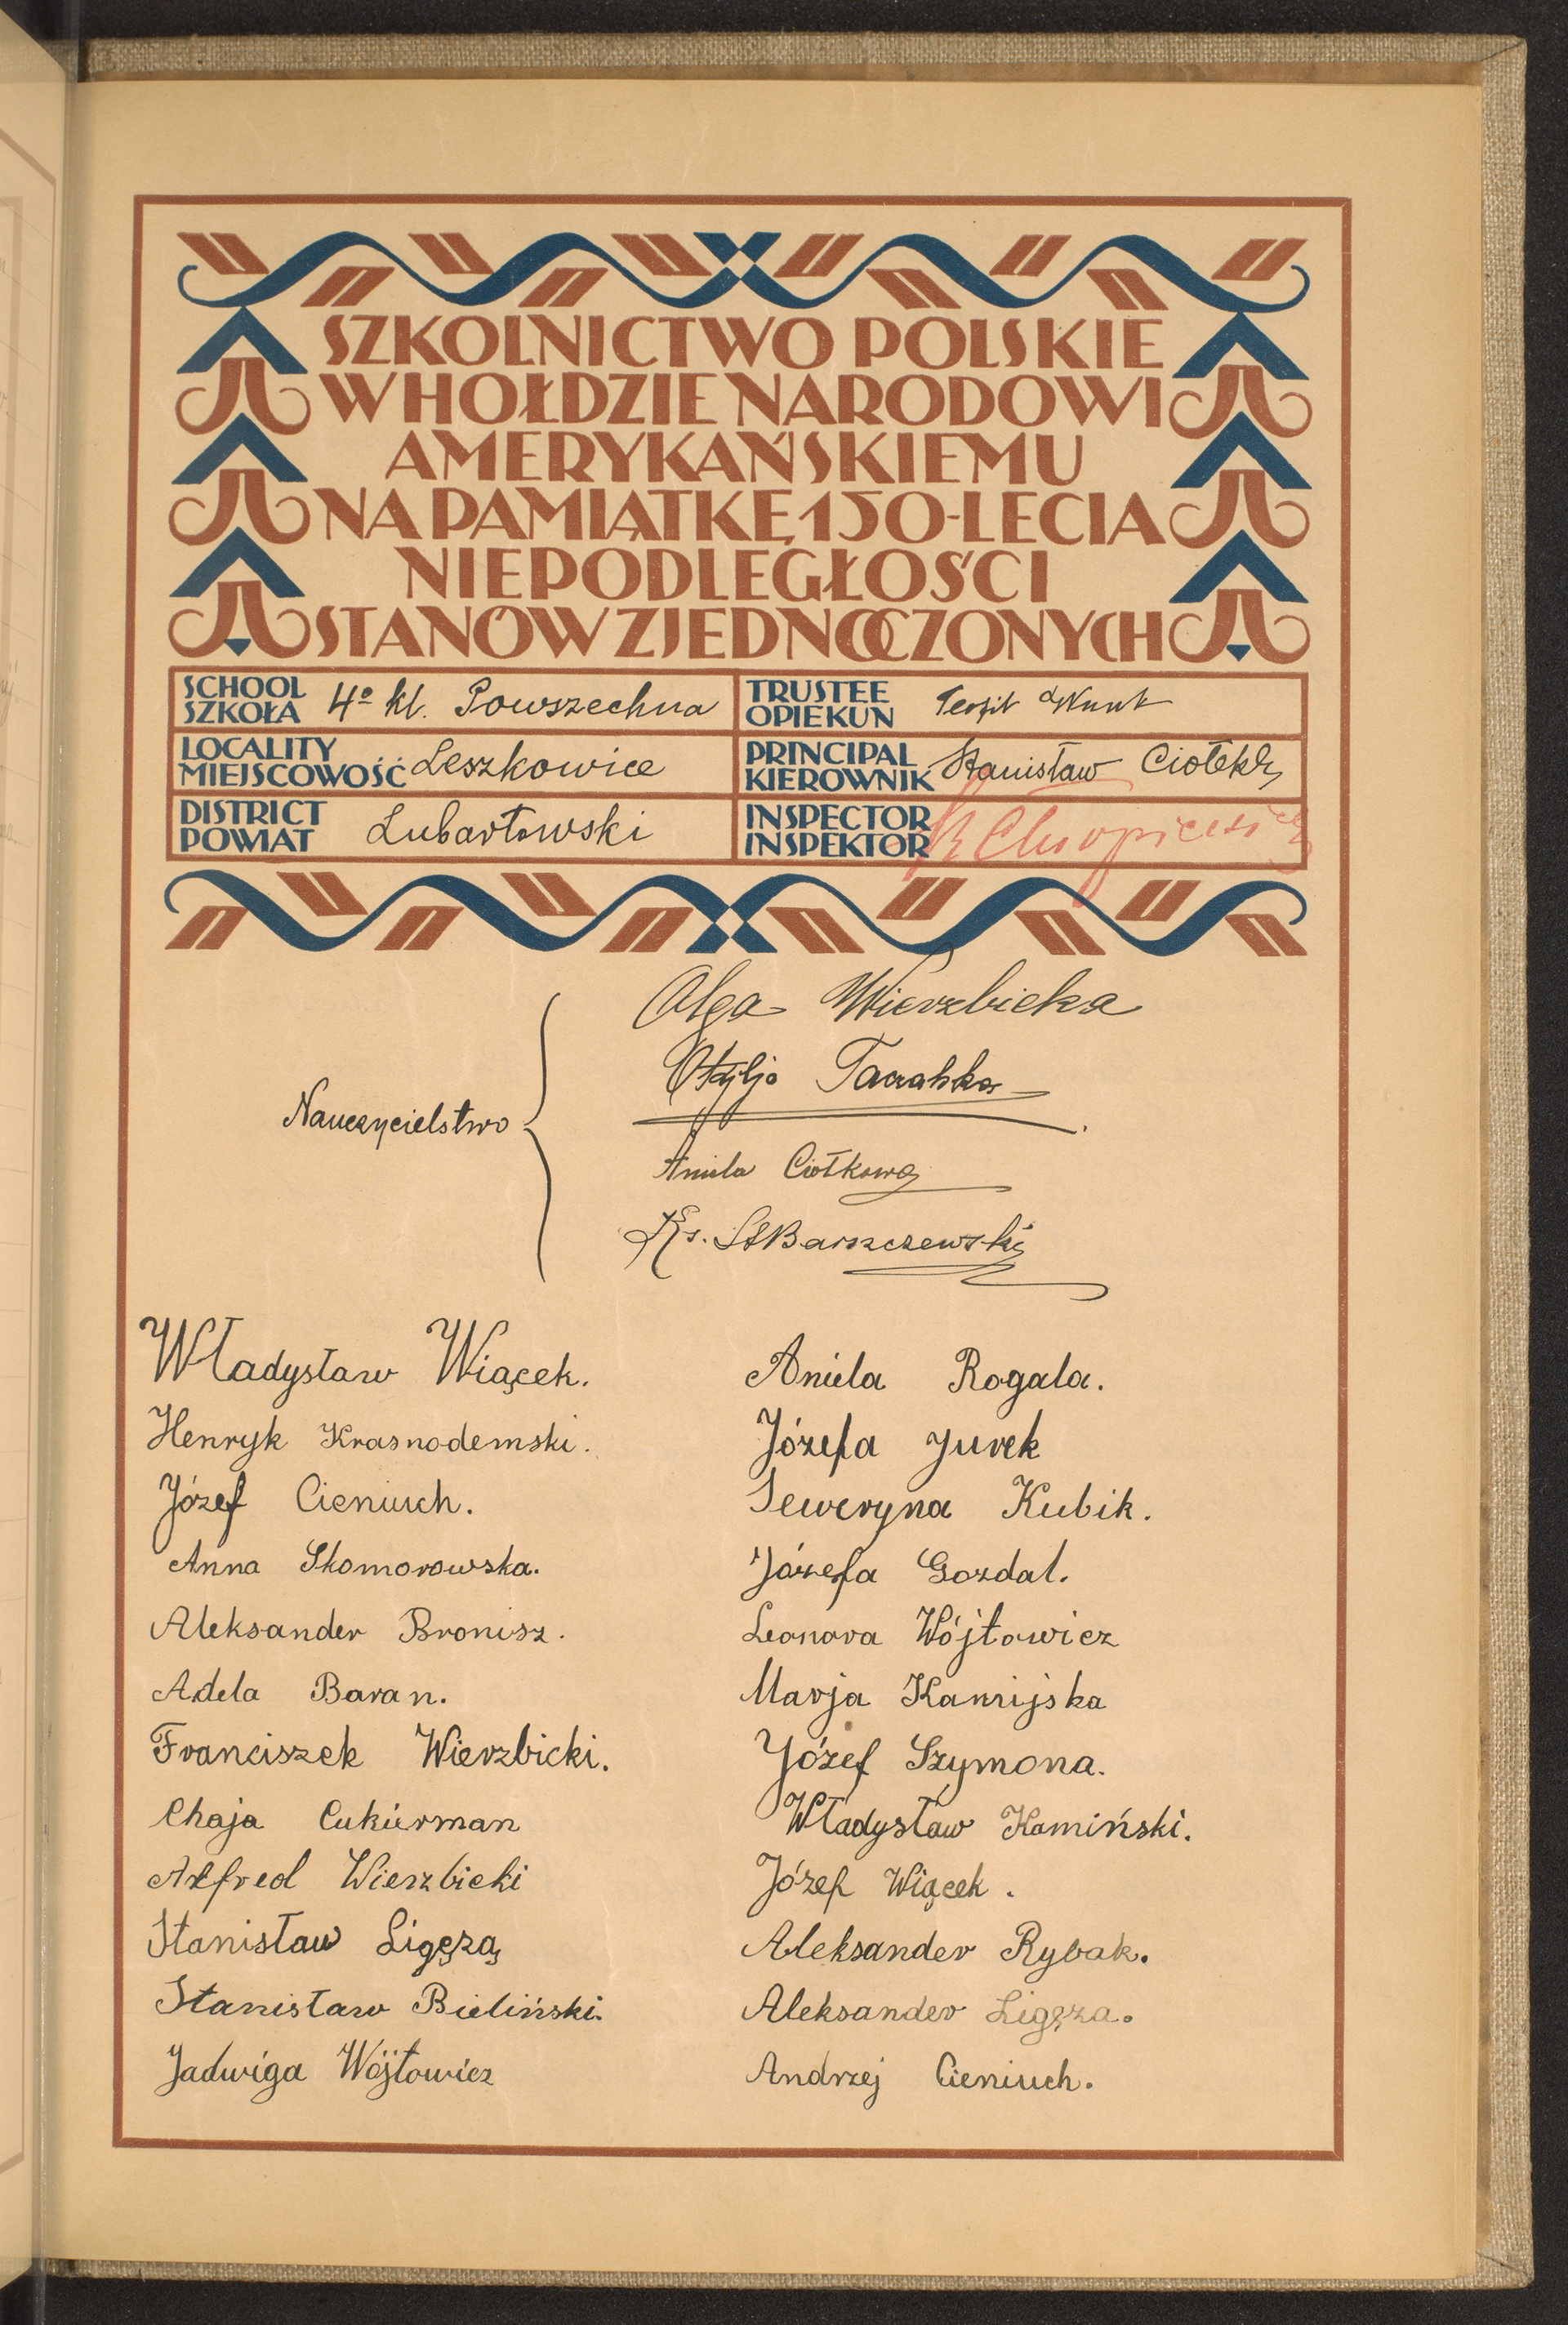 SZKOLNICTWO POLSKIE
W HOŁDZIE NARODOWI
AMERYKAŃSKIEMU
NA PAMIĄTKĘ 150-LECIA
NIEPODLEGŁOŚCI
STANÓW ZJEDNOCZONYCH
SCHOOL
SZKOŁA
4o kl. Powszechna
TRUSTEE
OPIEKUN
LOCALITY
MIEJSCOWOŚĆ
Leszkowice
PRINCIPAL
KIEROWNIK
Stanisław Ciołek
DISTRICT
POWIAT
Lubartowski
INSPECTOR
INSPEKTOR
Nauczycielstwo
Olga Wierzbicka
Otylja
Aniela Ciołkowa
Ks. St Barszczewski
Władysław Wiącek.
Henryk Krasnodemski.
Józef Cieniuch.
Anna Skomorowska.
Aleksander Bronisz.
Adela Baran.
Franciszek Wierzbicki.
Chaja Cukierman
Alfred Wierzbicki
Stanisław Ligęza
Stanisław Bieliński.
Jadwiga Wójtowicz
Aniela Rogala.
Józefa Jurek
Seweryna Kubik.
Józefa Gozdal.
Leonora Wójtowicz
Marja
Józef Szymona.
Władysław Kamiński.
Józef Wiącek.
Aleksander Rybak.
Aleksander Ligęza.
Andrzej Cieniuch.